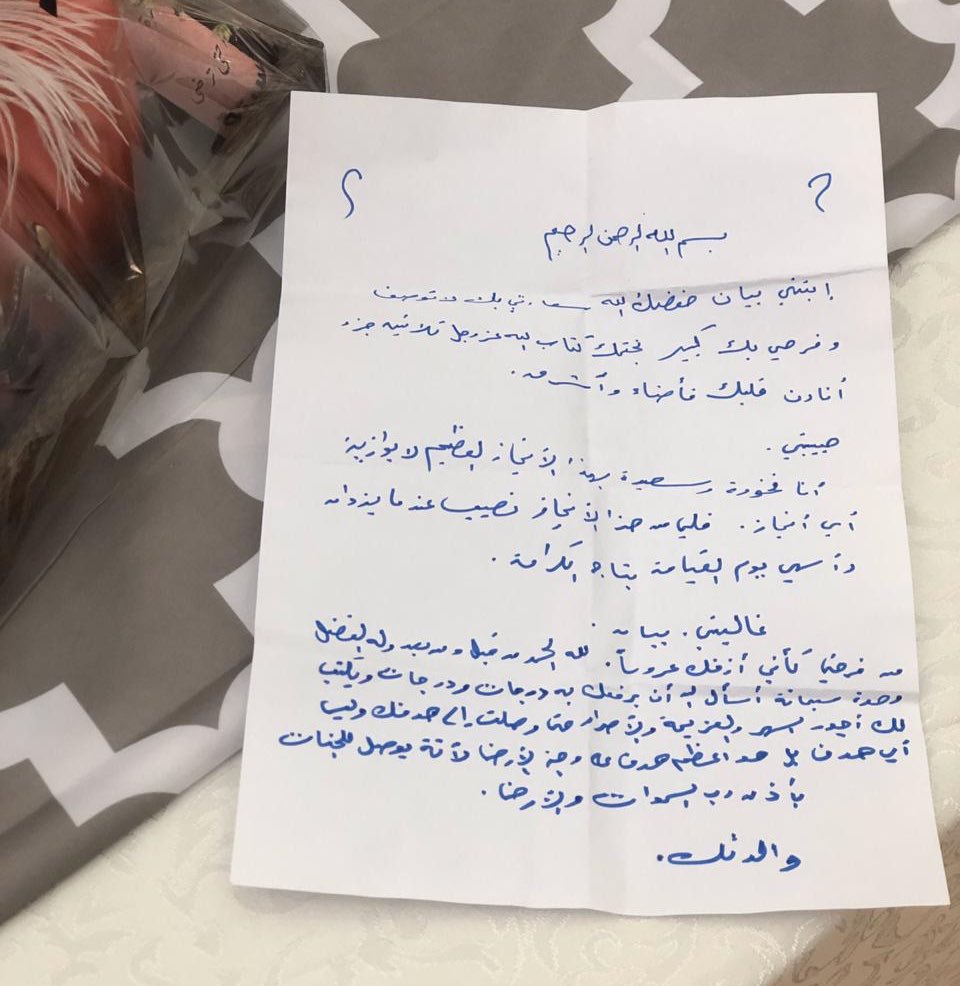 حتى ترضى
بسم الله الرحمن الرحيم
إبنتي بيان حفظك الله سعادتي بك لا توصف
وفرحي بك كبير بختمك كتاب الله عز وجل ثلاثين جزء
أنارت قلبك فأضاء وأشرق.
حبيبتي.
أنا فخورة وسعيدة بهذا الأنجاز العظيم لا يوازية
أي أنجاز. فلي من هذا الأنجاز نصيب عندما يزدان
رأسي يوم القيامة بتاج الكرامة.
غاليتي. بيان.
من فرحتي كأني أزفك عروساً. لله الحمد من قبل ومن بعد وله الفضل
وحدة سبحانة أسأل الله أن يرفعك به درجات ودرجات ويكتب
لك أجور السهر والعزيمة والأصرار حتى وصلت إلى هدفك وليس
أي هدف بل هو أعظم هدف على وجه الأرض لأنة يوصل للجنات
بأذن رب السموات والأرض.
والدتك.